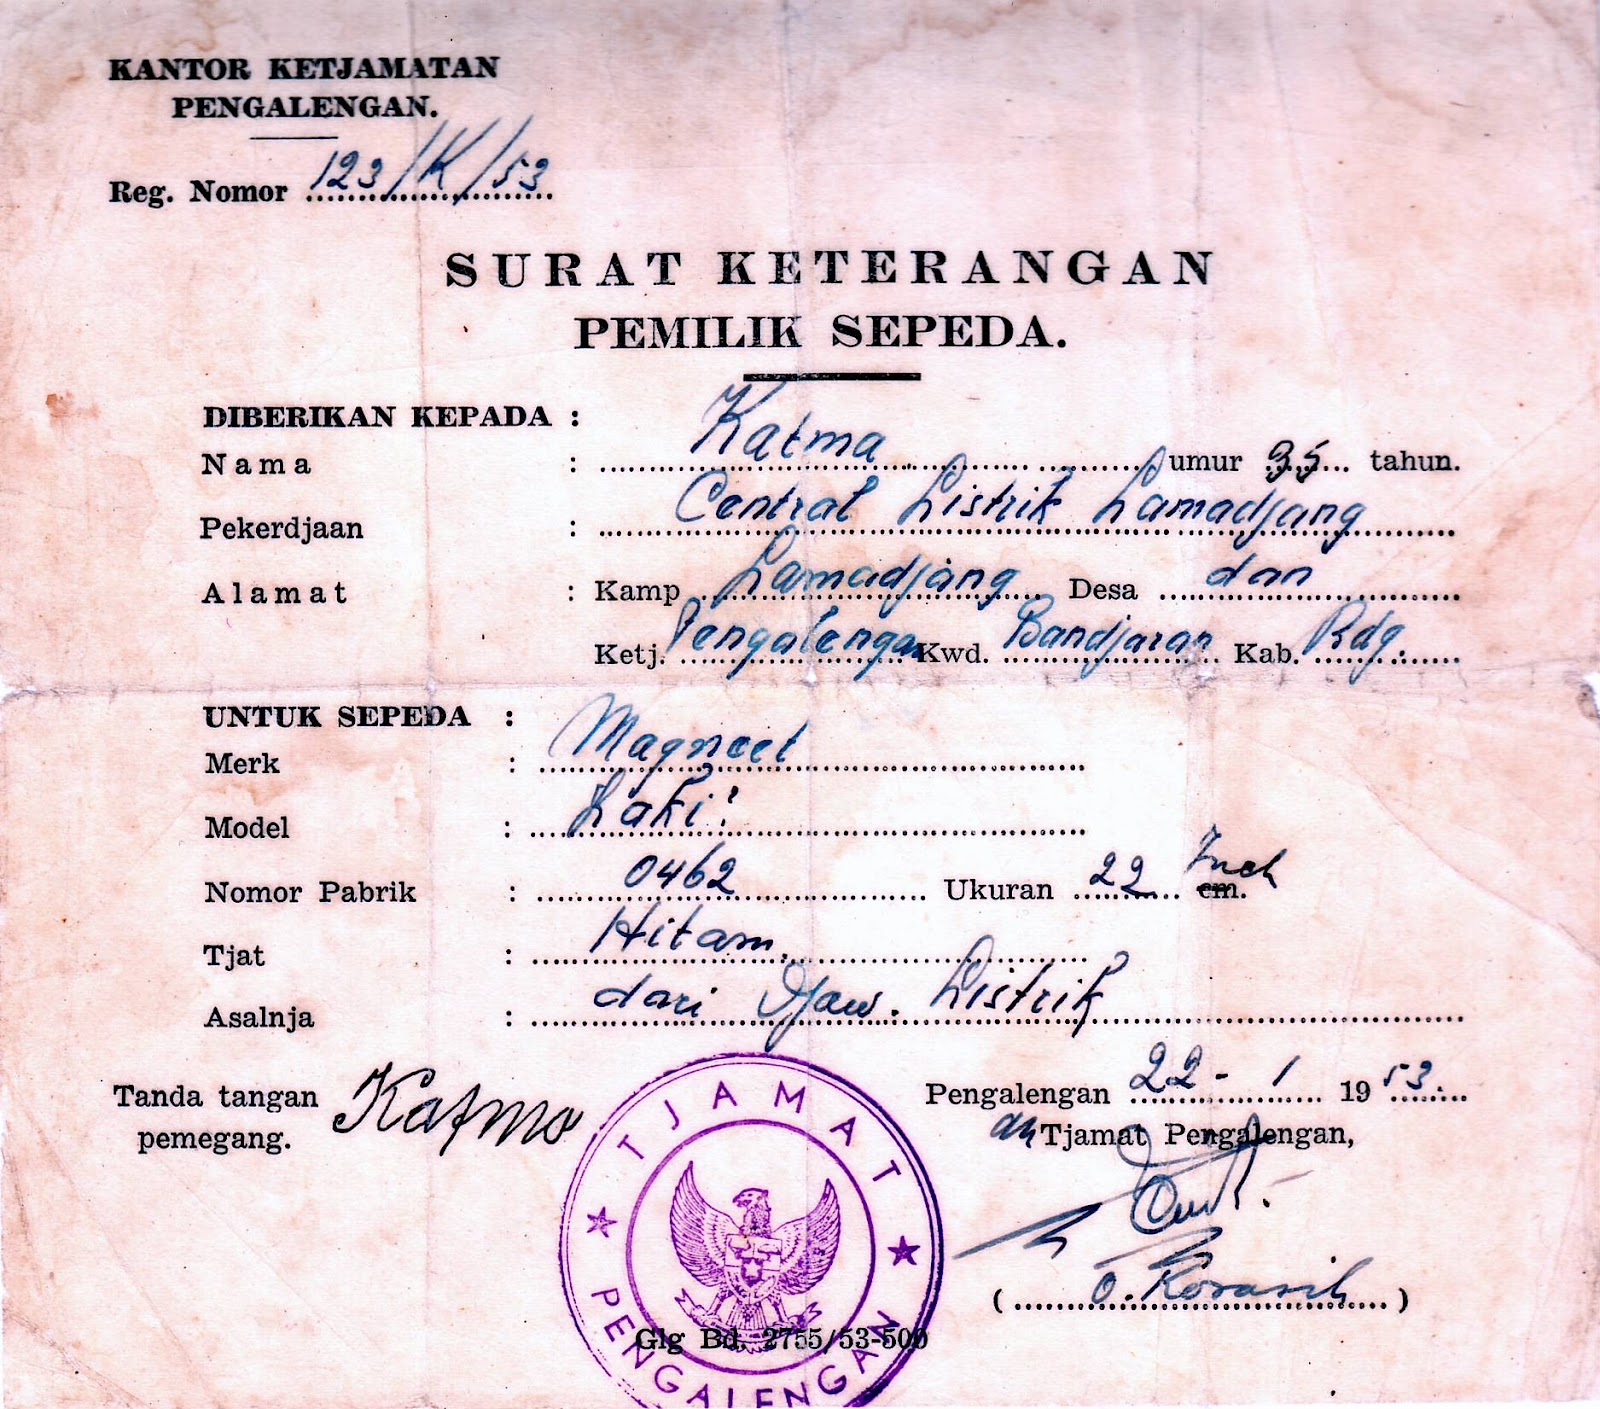 KANTOR KETJAMATAN
PENGALENGAN.
Reg. Nomor 123/K/53
SURAT KETERANGAN
PEMILIK SEPEDA.
DIBERIKAN KEPADA :
Nama : Katma umur 35 tahun.
Pekerdjaan : Central Listrik Lamadjang
Alamat : Kamp Lamadjang Desa dan
Ketj. Pengalengan Kwd. Bandjaran Kab. Bdg.
UNTUK SEPEDA :
Merk : Magneet
Model : Laki²
Nomor Pabrik : 0462 Ukuran 22 Inch cm.
Tjat : Hitam
Asalnja : dari Djaw. Listrik
Tanda tangan pemegang. Katma
Pengalengan 22-1 1953.
an Tjamat Pengalengan,
TJAMAT
PENGALENGAN
Glg Bd. 2755/53-500